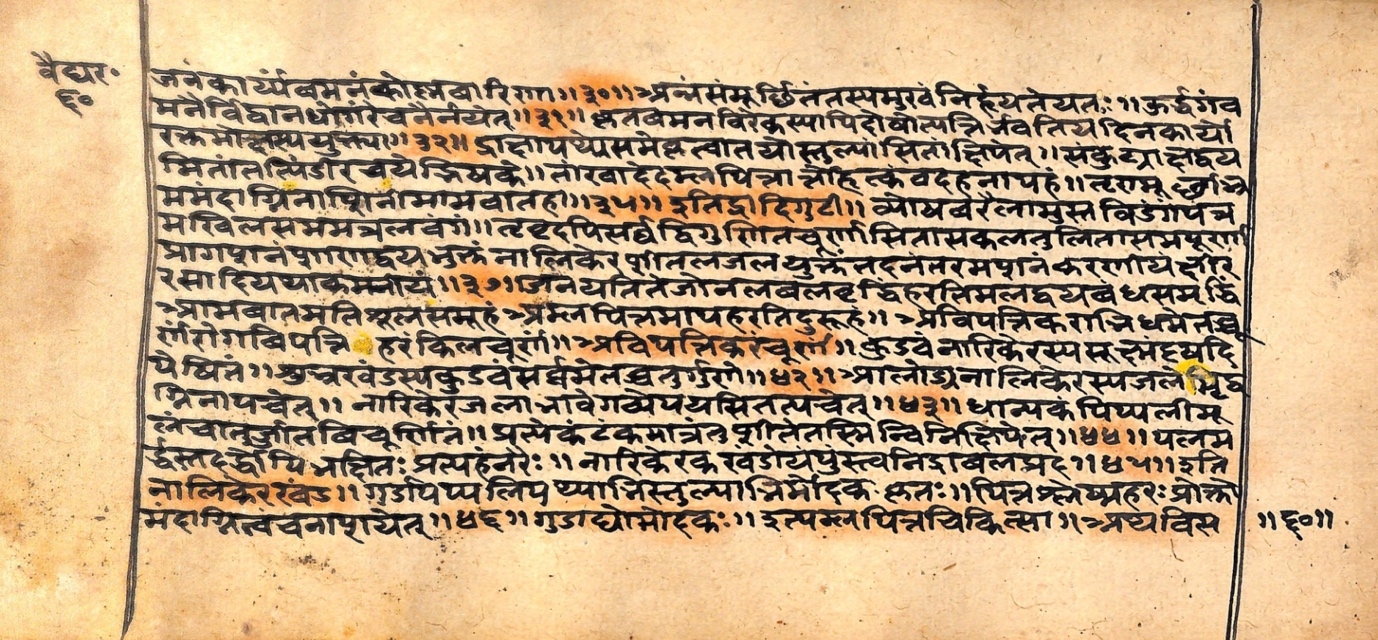 वैद्यर॰
६०
जनंकार्य्यंवमनंकोष्णवारिणा ॥३०॥ अन्नंसंमूर्छितंतस्यमुखंनिर्हयतेयतः ॥ ऊर्द्धगंव
मनैर्विद्वानधोगंरेचनैर्नयेत् ॥३१॥ कृतवमनविरेकस्यापिदोषोत्पत्तिर्भवतियदिनकार्या
रक्तमोक्षस्ययुक्त्या ॥३२॥ द्राक्षापथ्यासमेकृत्वातयोस्तुल्यांसितांक्षिपेत् ॥ संकुट्याक्षद्वय
मितांतत्पिंडींरचयेद्भिषक् ॥ तांखादेदम्लपित्तार्त्तोहृत्कंठदहनापहं ॥ तृणमूर्छा
ममंदाग्निनाशिनीमामवातहा ॥३५॥ इतिद्राक्षादिगुटी ॥ व्योषवरैलामुस्तविडंगंपत्र
मखिलसममत्रलवंगं ॥ तृवृदपिसर्वद्विगुणितचूर्णंसितासकलतुलितासमपूर्णा
प्रागशनंशाणद्वयभुक्तंनालिकेरशीतलजलयुक्तंतदनंतरमशनंकरणीयंक्षीर
रसादियथाकमनीयं ॥३७॥ जनयतितेजोनलबलवृद्धिंहरतिमलद्वयबंधसमृद्धिं
आमवातमतिशूलसमूहंअम्लपित्तमापहरतिदुरूहं ॥ अविपत्तिकराभिधमेतच्चू
र्णंरोगविपत्तिहरंकिलचूर्णं ॥ अविपत्तिकरंचूर्णं ॥ कुडवंनारिकेरस्यसूक्ष्मंदृषदि
पेषितं ॥ शुभ्रखंडस्यकुडवंसर्वमेतच्चतुर्गुणे ॥४२॥ आलोड्यनालिकेरस्यजलेमृद्व
ग्निनापचेत् ॥ नारिकेरजलाभावेगव्येपयसितत्पचेत् ॥४३॥ धान्यकंपिप्पलीमू
लंचातुर्जातविचूर्णितं ॥ प्रत्येकंटंकमात्रंतुशीतेतस्मिन्विनिक्षिपेत् ॥४४॥ पलम
र्द्धंस्तदर्द्धोपिभक्षितः प्रत्यहंनरैः ॥ नारिकेरकखंडोयंपुंस्त्वनिद्राबलप्रद ॥४५॥ इति
नालिकेरखंड ॥ गुडपिप्पलिपथ्याभिस्तुल्याभिर्मोदकः कृतः ॥ पित्तश्लेष्महरः प्रोक्तो
मंदाग्नित्वंचनाशयेत् ॥४६॥ गुडाद्योमोदकः ॥ इत्यम्लपित्तचिकित्सा ॥ अथविस
॥६०॥